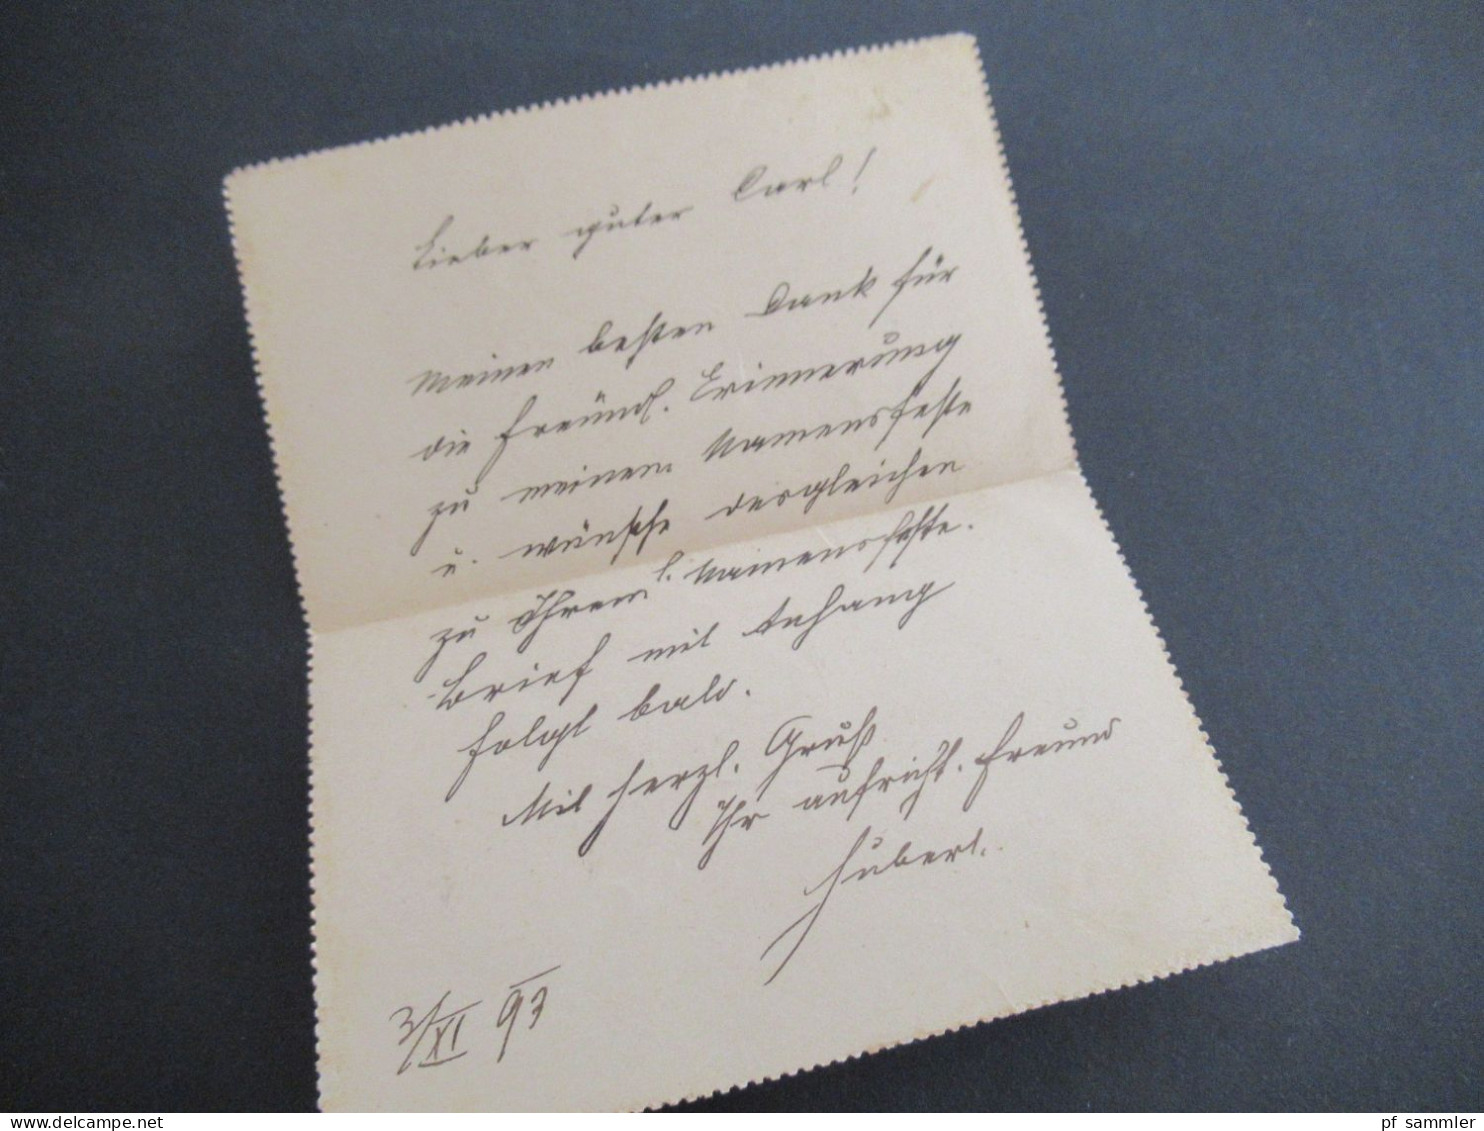 Lieber guter Carl!
Meinen besten Dank für
die freundl. Erinnerung
zu meinem Namensfeste
u. wünsche desgleichen
zu Ihrem l. Namensfeste.
Brief mit Anhang
folgt bald.
Mit herzl. Gruß
Ihr aufricht. Freund
Hubert.
3/XI 97
pf_sammler